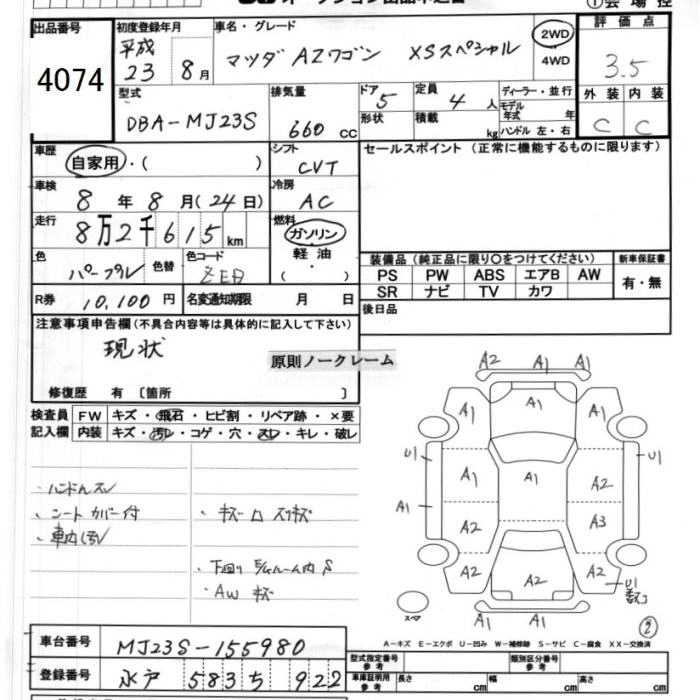 出品番号
4074
初度登録年月
平成
23 8月
車名・グレード
マツダ AZワゴン XSスペシャル
2WD
4WD
評価点
3.5
外装 内装
C C
型式
DBA-MJ23S
排気量
660 cc
ドア 5
形状
定員 4 人
積載 kg
ディーラー・並行
モデル年式 年
ハンドル 左・右
車歴
自家用・( )
シフト
CVT
セールスポイント(正常に機能するものに限ります)
車検
8 年 8 月(24日)
冷房
AC
走行
8万2千615 km
燃料
ガソリン
軽油
( )
色
パープル
色替
色コード
ZEA
装備品(純正品に限り○をつけてください)
新車保証書
PS PW ABS エアB AW
SR ナビ TV カワ
有・無
R券 10,100 円
名変通知期限 月 日
後日品
注意事項申告欄(不具合内容等は具体的に記入して下さい)
現状
原則ノークレーム
修復歴 有〔箇所 〕
検査員
記入欄
FW キズ・飛石・ヒビ割・リペア跡・×要
内装 キズ・汚レ・コゲ・穴・スレ・キレ・破レ
・ハンドルスレ
・シートカバー付
・車内汚レ
AW キズ
A2 A1 A1
A1 A1 A1
U1 U1
A1 A1 A2
A1
A2 A3
A2 A2 A2
U1
A2 A1 A1
スペア
2
A-キズ E-エクボ U-凹み W-補修跡 S-サビ C-腐食 XX-交換済
車台番号 MJ23S-155980
登録番号 水戸 5835 922
型式指定番号
参考
類別区分番号
参考
車庫証明用
参考
長さ cm 幅 cm 高さ cm